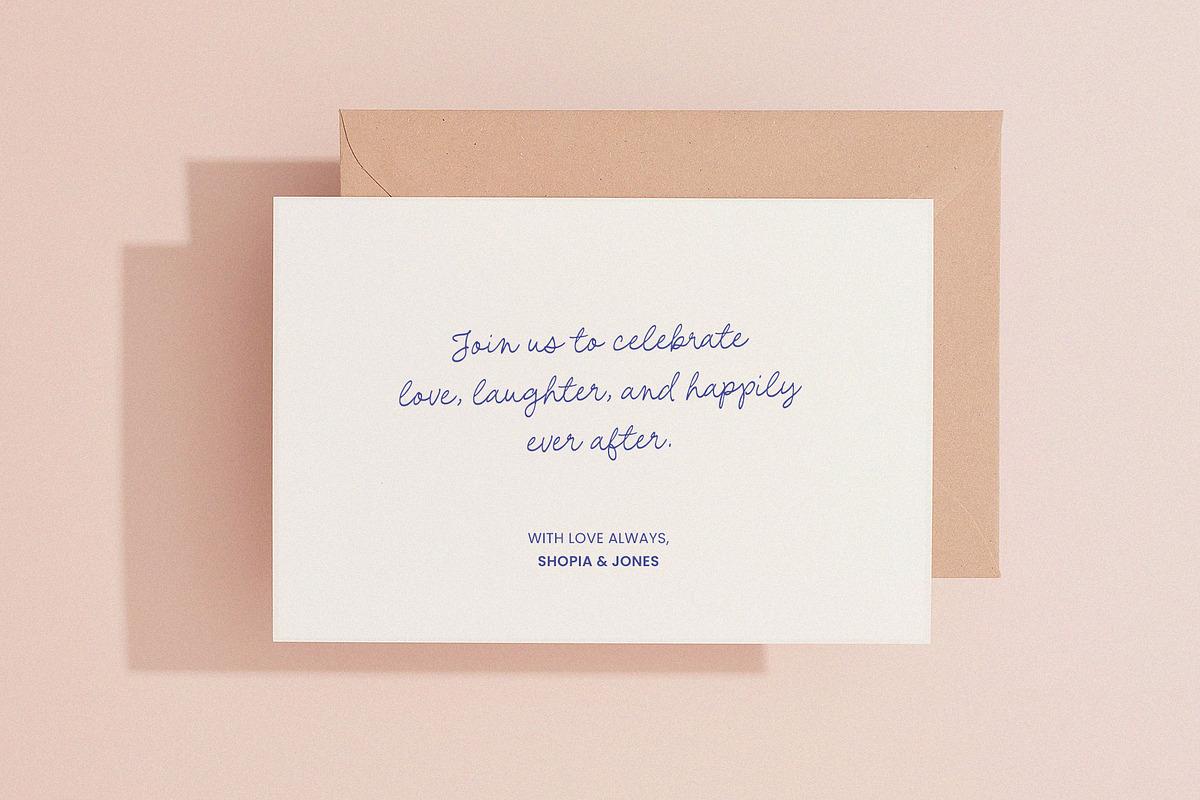 Join us to celebrate
love, laughter, and happily
ever after.
WITH LOVE ALWAYS,
SHOPIA & JONES